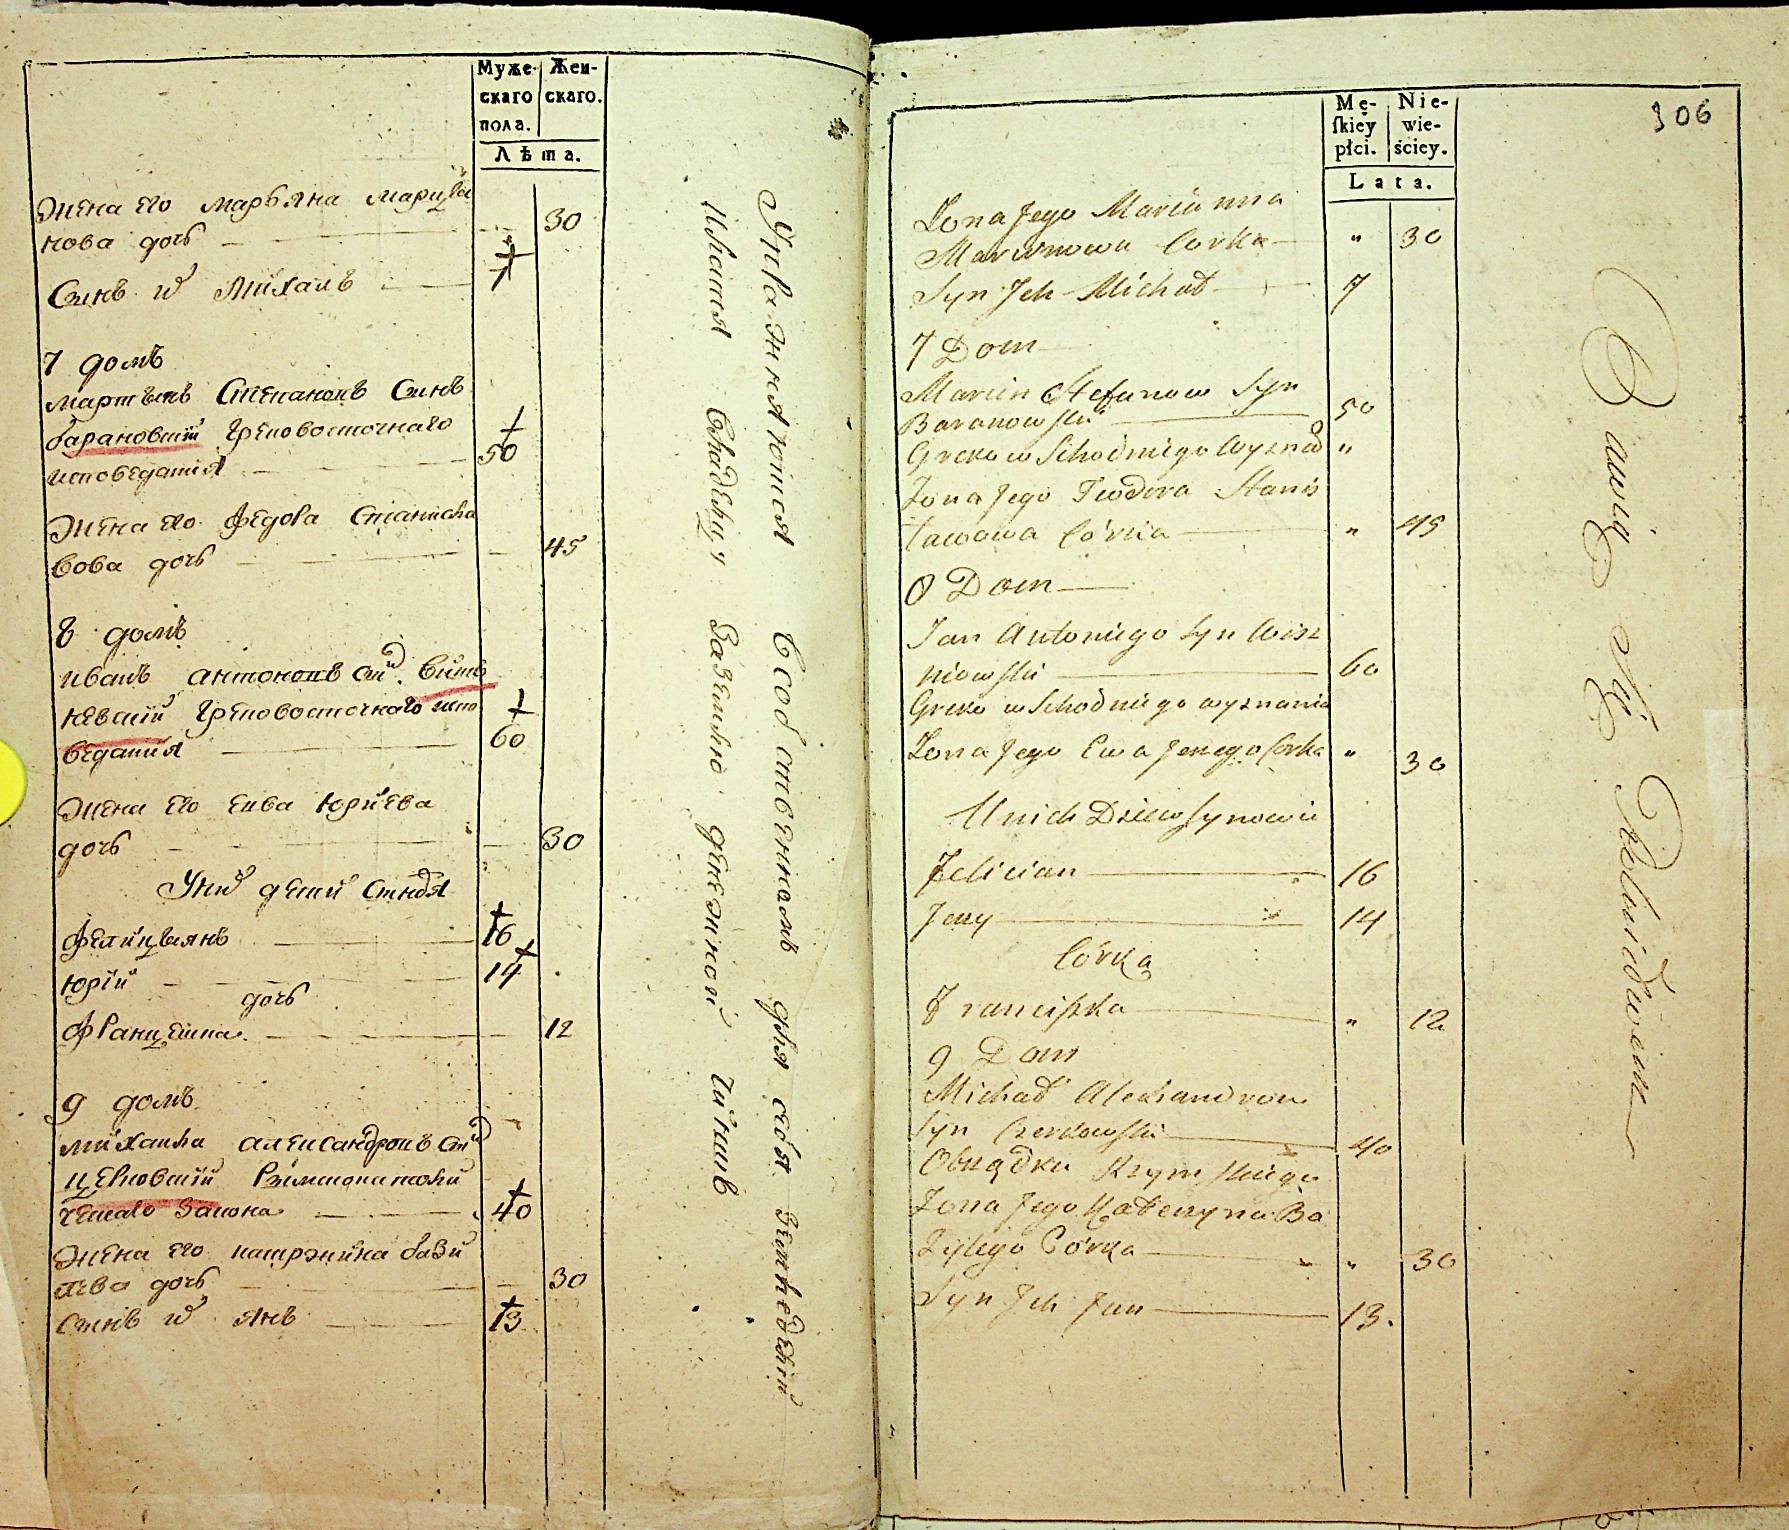 Муже-
скаго
пола.
Жен-
скаго.
Лѣта.
Жена его марьяна марци
нова дочь — 30
Сынъ их Михаилъ — 7
7 домъ
мартынъ Степановъ Сынъ
барановскій Грековосточнаго
исповеданія — 50
Жена его Федора Станисла
вова дочь — 45
8 домъ
иванъ антоновъ сы. Виш
невскій Грековосточнаго испо
веданія — 60
Жена его Евва Юрьева
дочь — 30
У них детей Сыновя
Фелицыянъ — 16
Юрій — 14
дочь
Францешка — 12
9 домъ
михаила александровъ сы
церковскій Римскокатоли
ческаго Закона — 40
Жена его катрэжина бази
лева дочь — 30
Сынъ их янъ — 13
Упражняются Собственнымъ для себя Земледелі
владельцу денежной чиншъ
306
Mę-
ſkiey
płci.
Nie-
wie-
ściey.
Lata.
Zona Jego Marianna
Marcinowa Corka — " 30
Syn Jch Michał — 7
7 Dom
Marcin Stefanow Syn
Baranowski — 50
Greko wschodniego wyznań "
Zona Jego Teodora Stanis
ławowa Córka — " 45
8 Dom
Jan Antoniego Syn Wisz
niowski — 60
Greko wschodniego wyznania
Zona Jego Ewa Jerzego Corka " 30
U nich Dzieci Synowie
Felician — 16
Jerzy — 14
Córka
Franciszka — " 12
9 Dom
Michał Aleksandrow
Syn Czerkowski — 40
Obrządku Rzymskiego
Zona Jego Katerzyna Ba
zylego Córka — " 30
Syn Jch Jan — 13.
Bawią się Rolnictwem